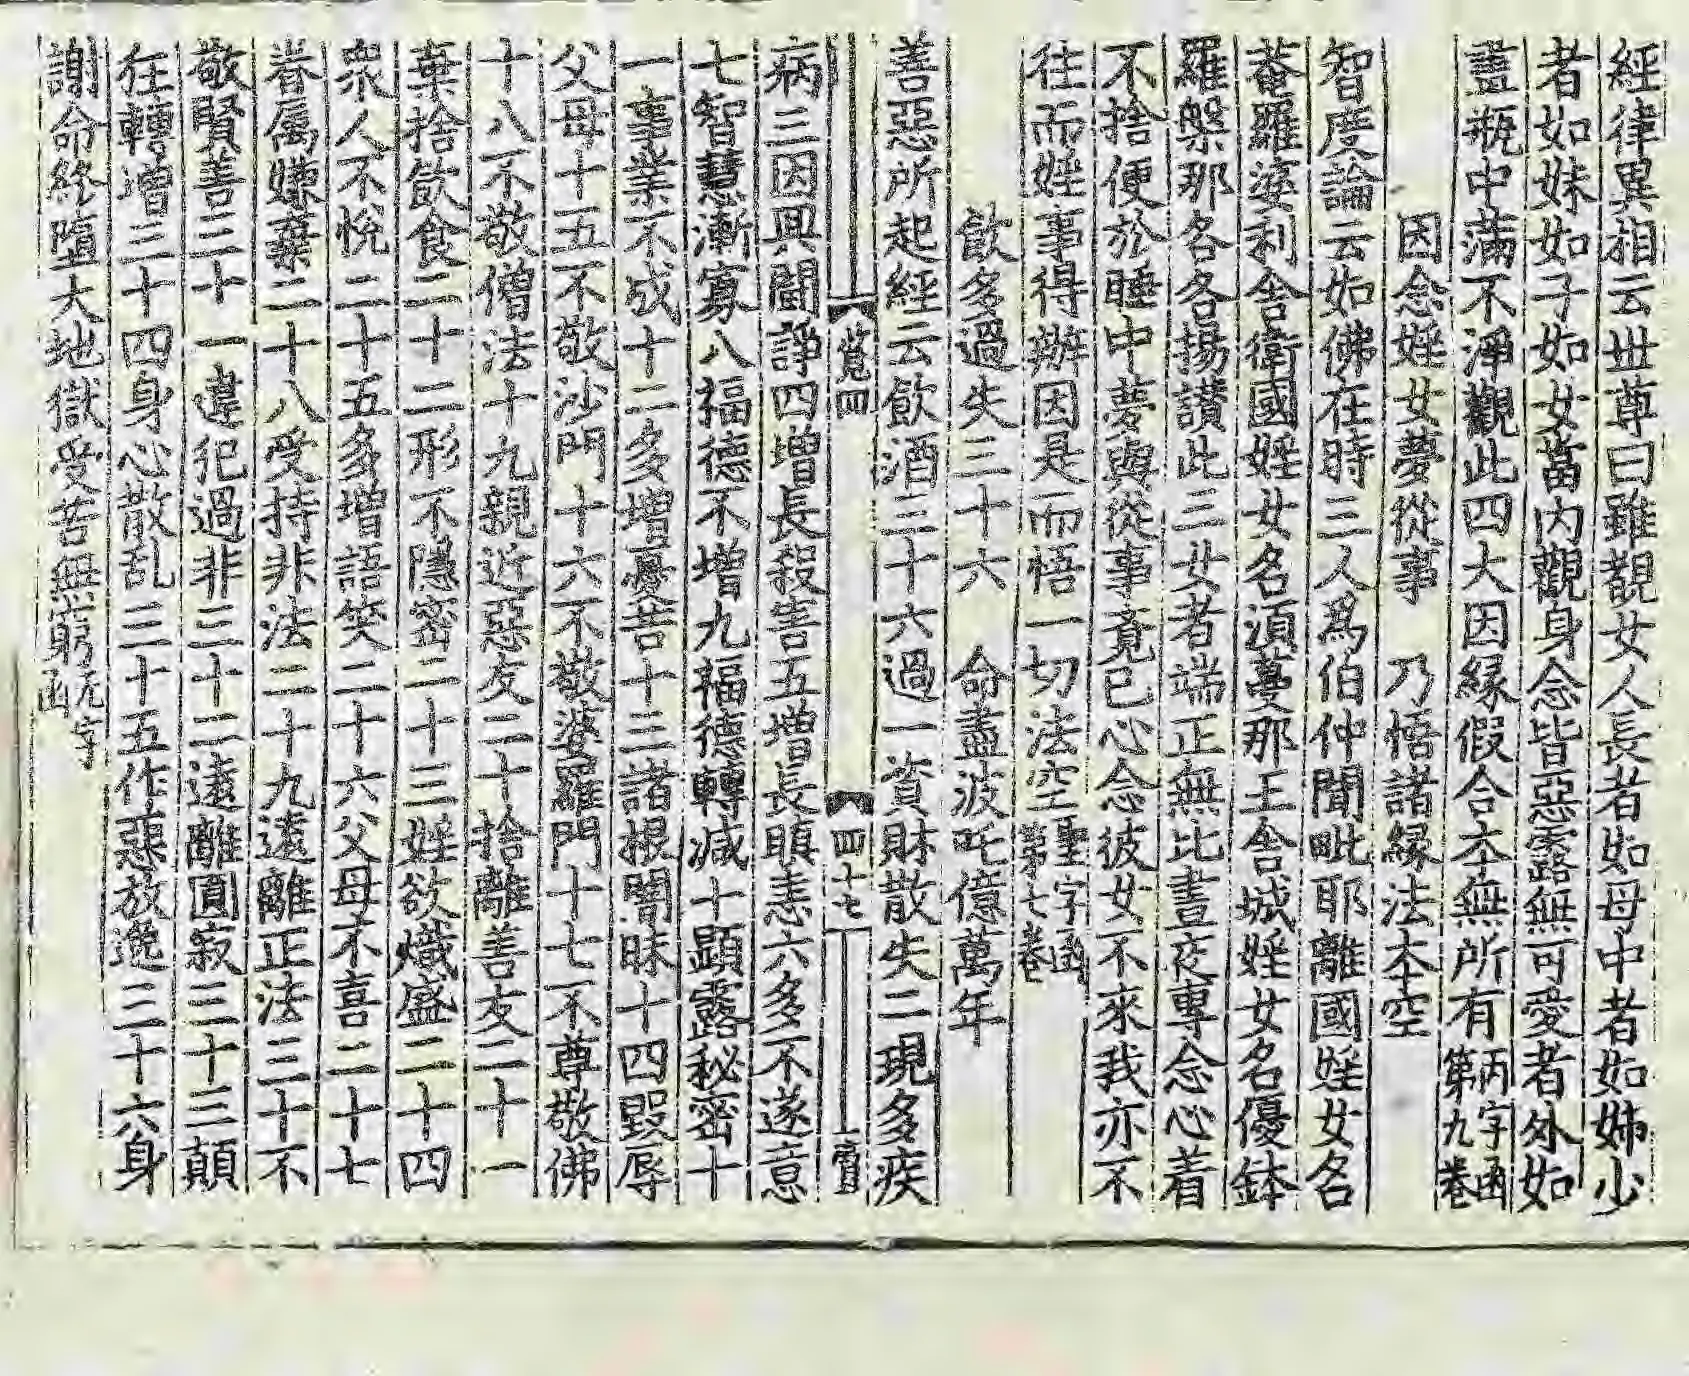 經律異相云世尊曰雖覩女人長者如母中者如姊少
者如妹如子如女當內觀身念皆惡露無可愛者外如
畫瓶中滿不淨觀此四大因緣假合本無所有第九卷丙字函
因念婬女夢從事　乃悟諸緣法本空
智度論云如佛在時三人爲伯仲聞毗耶離國婬女名
菴羅婆利舍衛國婬女名須蔓那王舍城婬女名優鉢
羅槃那各各揚讃此三女者端正無比晝夜專念心着
不捨便於睡中夢與從事覺已心念彼女不來我亦不
往而婬事得辦因是而悟一切法空聖字函第七卷
飲多過失三十六　命盡波吒億萬年
善惡所起經云飲酒三十六過一資財散失二現多疾
覧四　四十七
病三因興鬪諍四增長殺害五增長瞋恚六多不遂意
七智慧漸寡八福德不增九福德轉減十顯露秘密十
一事業不成十二多增憂苦十三諸根闇昧十四毀辱
父母十五不敬沙門十六不敬婆羅門十七不尊敬佛
十八不敬僧法十九親近惡友二十捨離善友二十一
棄捨飲食二十二形不隱密二十三婬欲熾盛二十四
衆人不悅二十五多增語笑二十六父母不喜二十七
眷屬嫌棄二十八受持非法二十九遠離正法三十不
敬賢善三十一違犯過非三十二遠離圓寂三十三顛
狂轉增三十四身心散乱三十五作惡放逸三十六身
謝命終墮大地獄受苦無窮